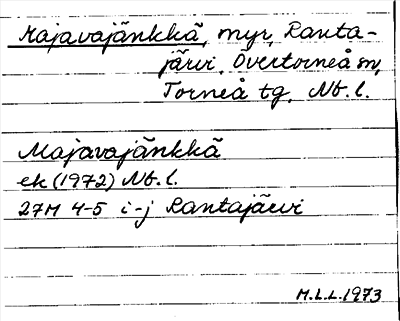 Majavajänkkä, myr, Ranta-
järvi, Övertorneå sn,
Torneå tg, Nb. l.
Majavajänkkä
ek (1972) Nb. l.
27M 4-5 i-j Rantajärvi
M.L.L. 1973